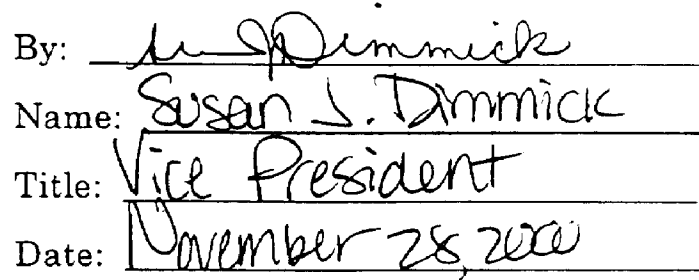 By: Su J Dimmick
Name: Susan J. Dimmick
Title: Vice President
Date: November 28, 2000